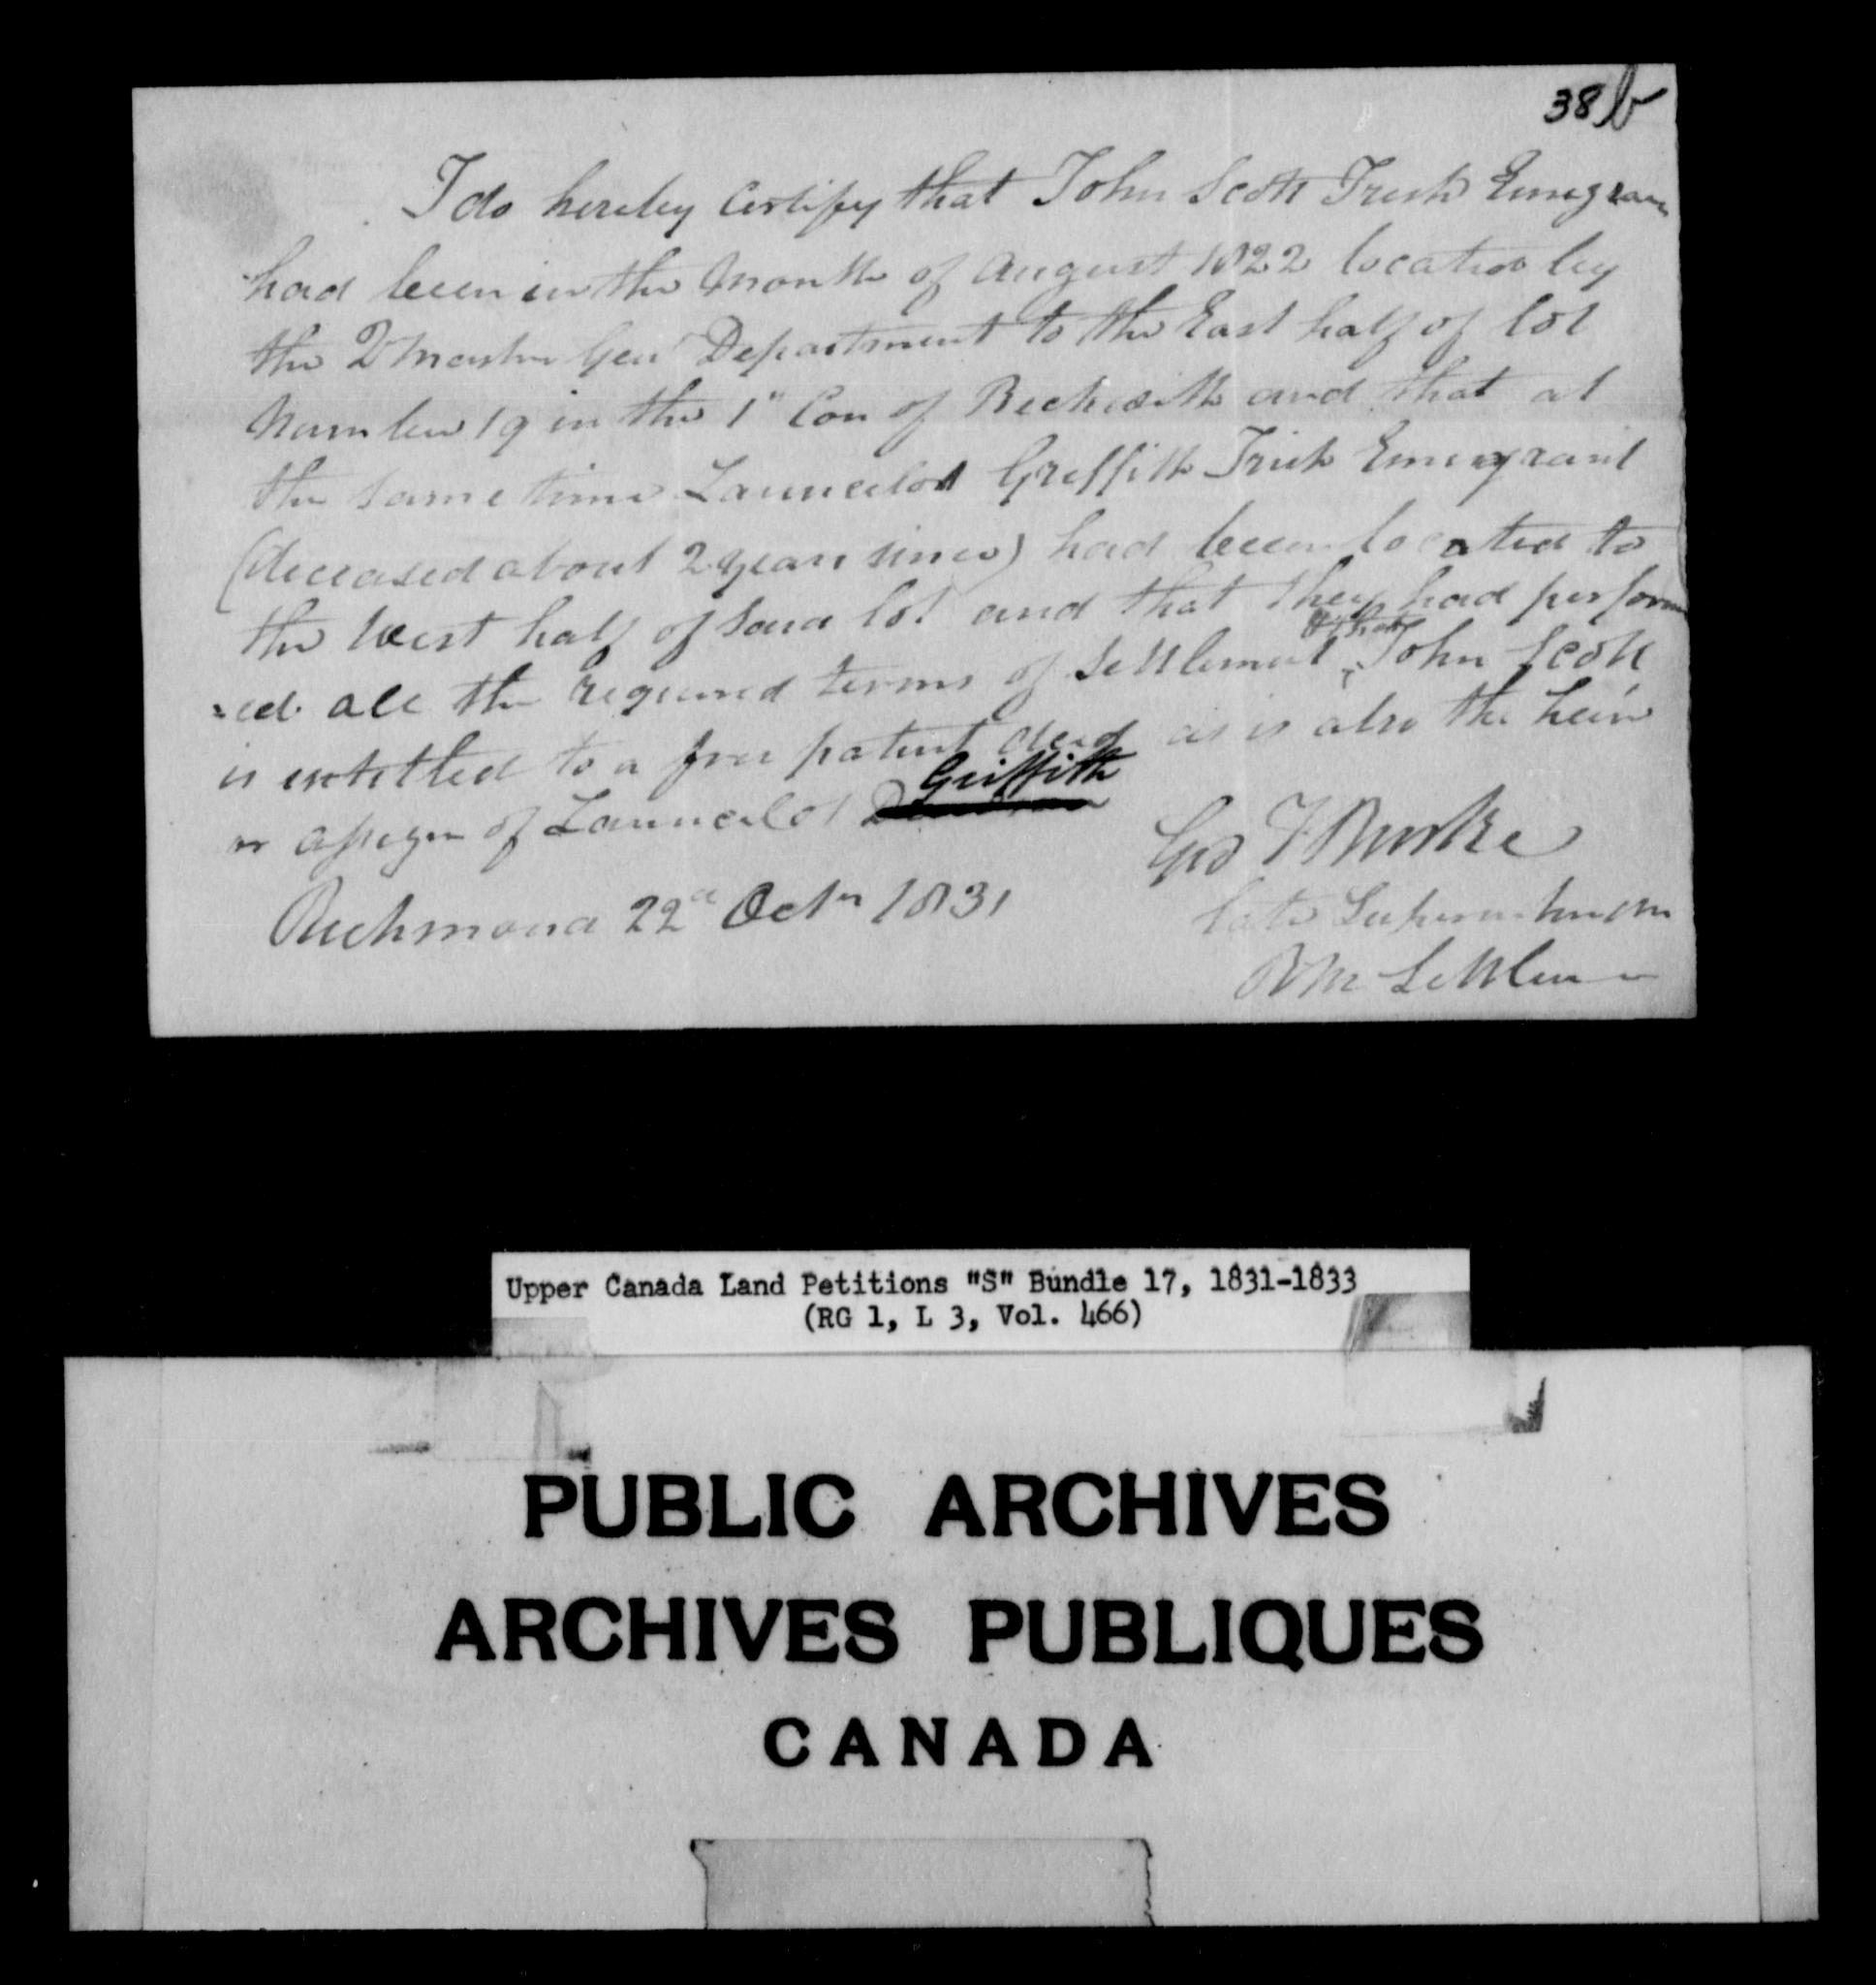 38b
I do hereby Certify that John Scott Irish Emigran
had been in the Month of August 1822 located by
the Q Master Gen Department to the East half of lot
Number 19 in the 1st Con of Beckwith and that at
the same time Launcelot Griffith Irish Emigrant
(deceased about 2 years since) had been located to
the West half of said lot and that they had perform
=ed all the required terms of Settlement & that John Scott
is entitled to a free patent deed as is also the heir
or assign of Launcelot Griffith
Geo T Burke
Richmond 22d Octr 1831
late Superintendent
RM Settlem
Upper Canada Land Petitions "S" Bundle 17, 1831-1833
(RG 1, L 3, Vol. 466)
PUBLIC ARCHIVES
ARCHIVES PUBLIQUES
CANADA